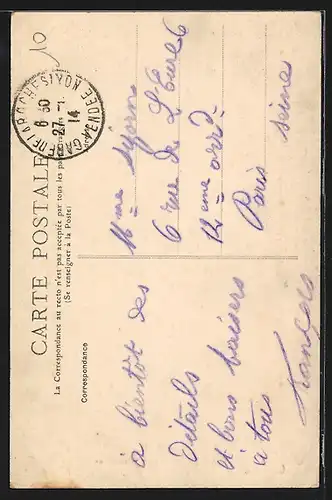 10
GARE DE LA ROCHE S/YON VENDEE
6 30
27 - 1
14
CARTE POSTALE
La Correspondance au recto n'est pas acceptée par tous les pays étrangers
(Se renseigner à la Poste)
Correspondance
à bientôt des
détails
et bons baisers
à tous
François
Mme
6 rue de L'Eure 6
12 eme arrd
Paris Seine